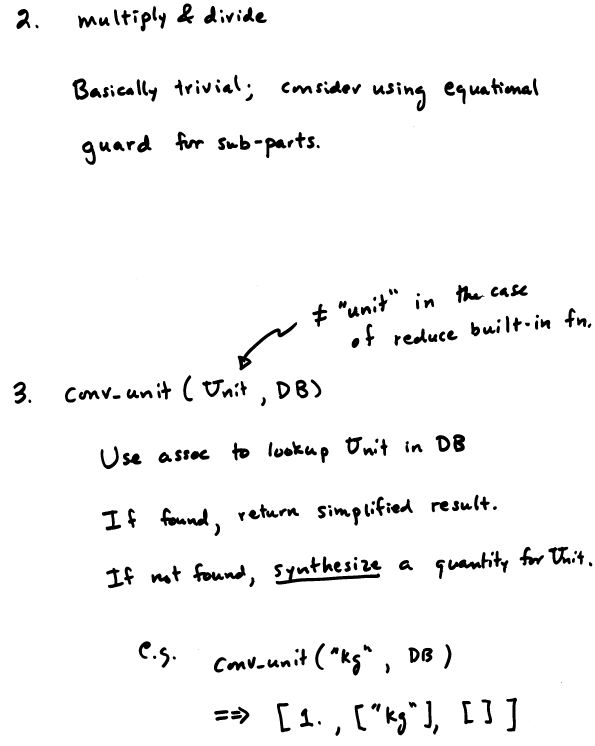 2. multiply & divide
Basically trivial; consider using equational
guard for sub-parts.
≠ "unit" in the case
of reduce built-in fn.
3. conv-unit (Unit, DB)
Use assoc to lookup Unit in DB
If found, return simplified result.
If not found, synthesize a quantity for Unit.
e.g. conv-unit ("kg", DB)
==> [1., ["kg"], []]